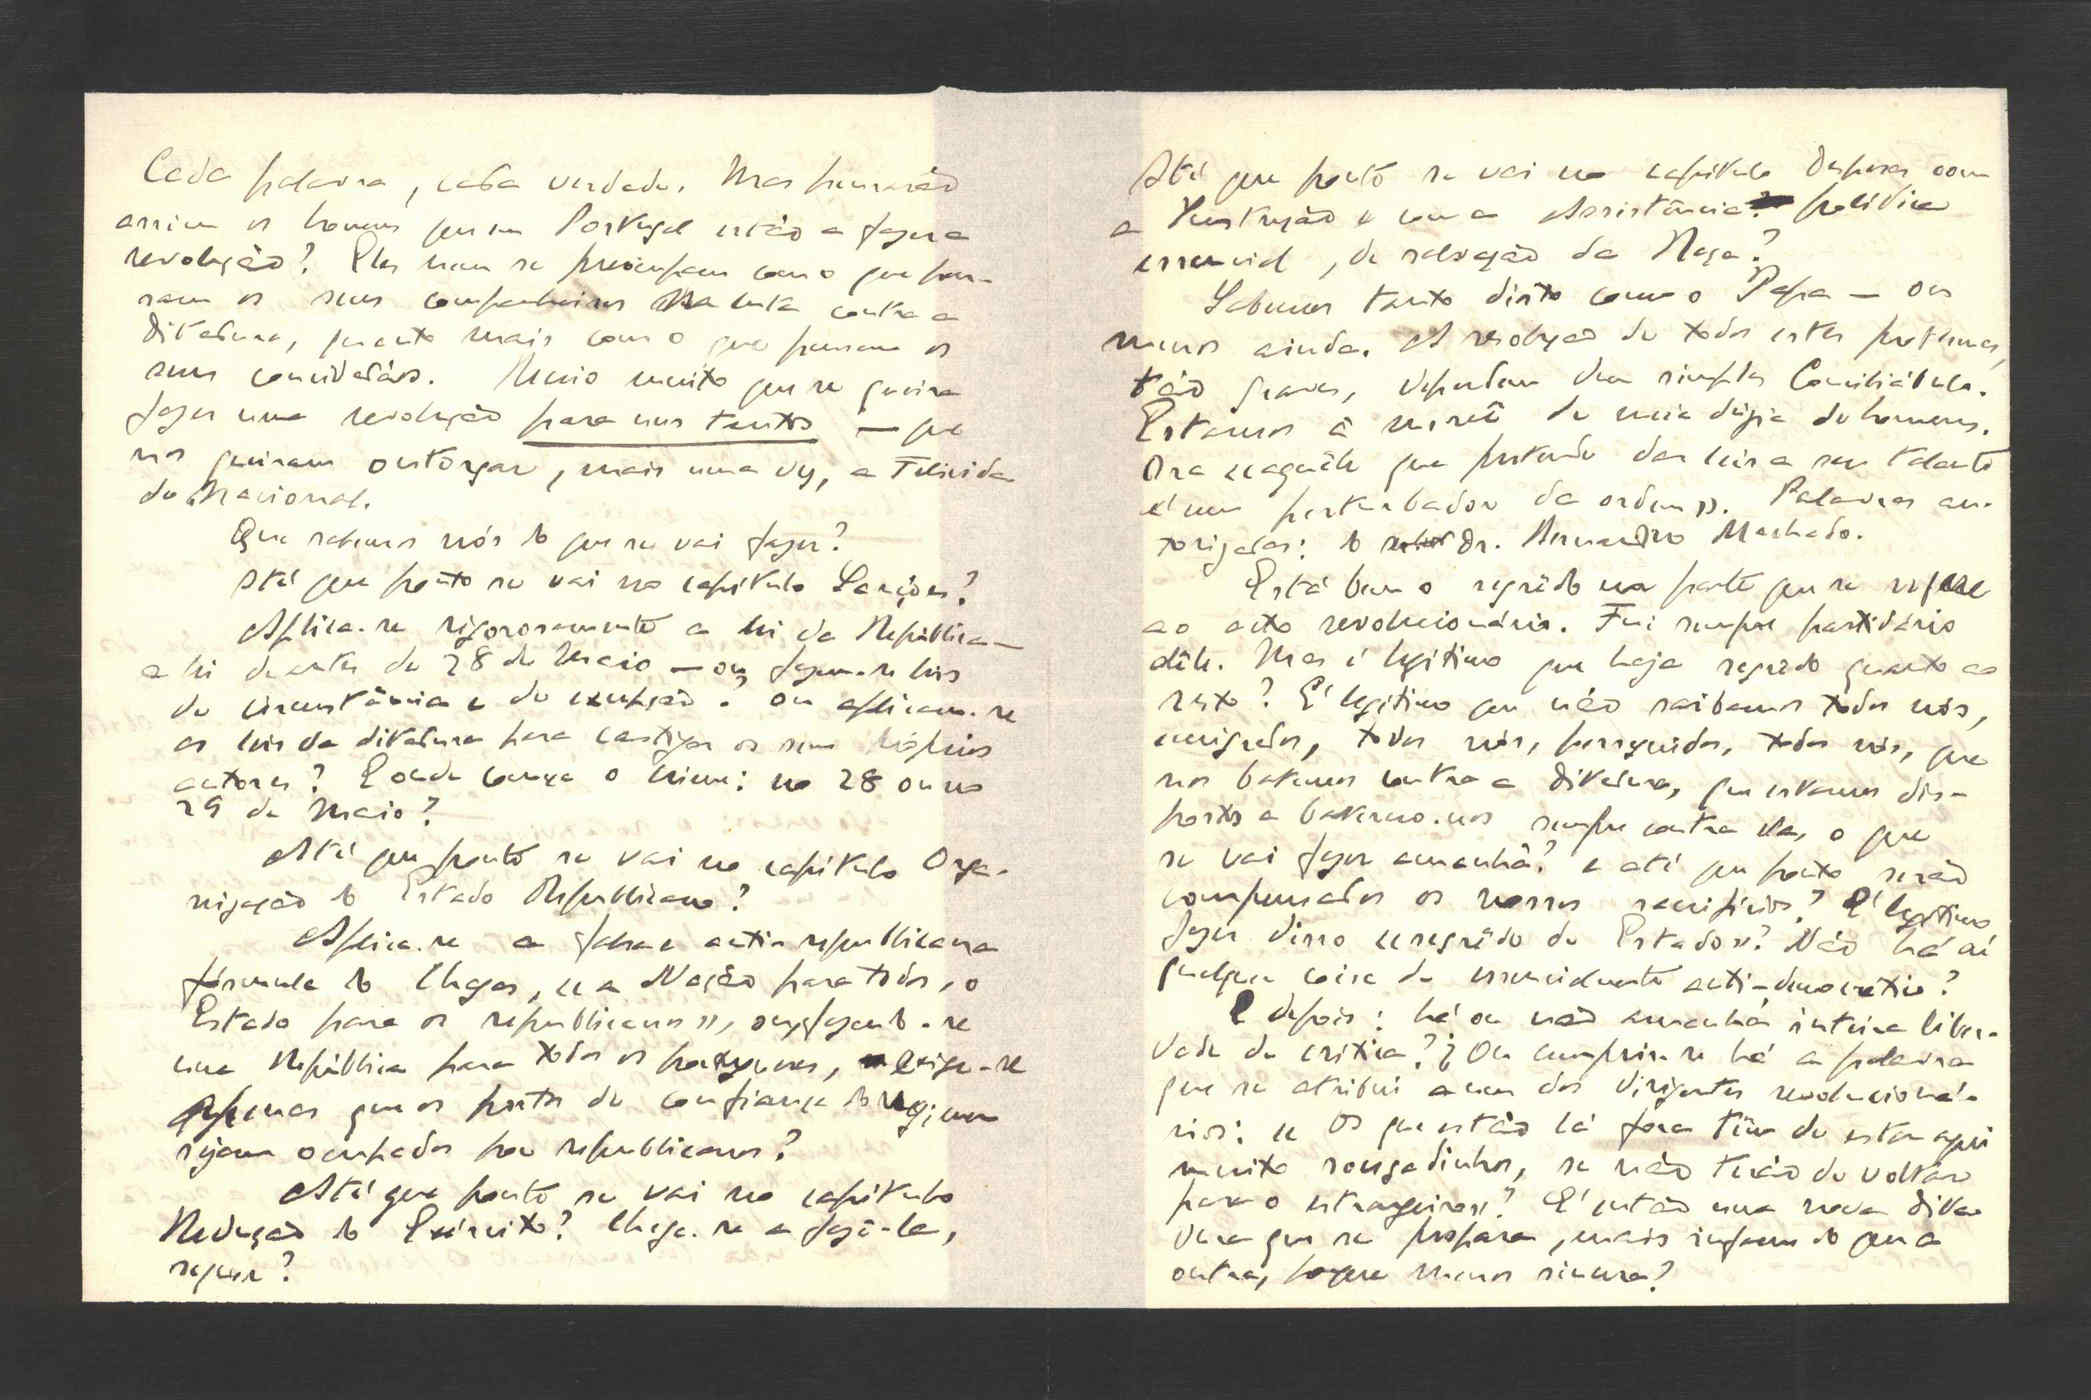 Cada palavra, cada verdade. Mas pensarão
assim os homens que em Portugal estão a fazer a
revolução? Eles nem se preocupam com o que pen-
sam os seus companheiros na luta contra a
ditadura, quanto mais com o que pensam os
seus concidadãos. Receio muito que se queira
fazer uma revolução para uns tantos — que
nos queiram outorgar, mais uma vez, a Felicida-
de Nacional.
Que sabemos nós do que se vai fazer?
Até que ponto se vai no capítulo Sanções?
Aplica-se rigorosamente a lei da República —
a lei de antes de 28 de Maio — ou fazem-se leis
de circunstância e de excepção? Ou aplicam-se
as leis da ditadura para castigar os seus próprios
autores? E onde começa o crime: no 28 ou no
29 de Maio?
Até que ponto se vai no capítulo Orga-
nização do Estado Republicano?
Aplica-se a falsa e anti-republicana
fórmula do Chagas, «a Nação para todos, o
Estado para os republicanos», ou, fazendo-se
uma República para todos os portugueses, exige-se
apenas que os postos de confiança do regimen
sejam ocupados por republicanos?
Até que ponto se vai no capítulo
Redução do Exército? Chega-se a fazê-la,
sequer?
Até que ponto se vai no capítulo Despesas com
a Instrução e com a Assistência? política
essencial, de salvação da Raça?
Sabemos tanto disto como o Papa — ou
menos ainda. A resolução de todos estes problemas,
tão graves, dependem dum simples Conciliábulo.
Estamos à mercê de meia dúzia de homens.
Ora «aquêle que pretende dar leis a seu talante
é um perturbador da ordem». Palavras au-
torizadas: do Dr. Bernardino Machado.
Está bem o segrêdo na parte que se refere
ao acto revolucionário. Fui sempre partidário
dêle. Mas é legítimo que haja segrêdo quanto ao
resto? É legítimo que não saibamos todos nós,
emigrados, todos nós, perseguidos, todos nós, que
nos batemos contra a ditadura, que estamos dis-
postos a batermo-nos sempre contra ela, o que
se vai fazer amanhã? e até que ponto serão
compensados os nossos sacrifícios? É legítimo
fazer disso «segrêdo de Estado»? Não há aí
qualquer coisa de essencialmente anti-democrático?
E depois: há ou não amanhã inteira liber-
dade de crítica? Ou cumprir-se há a palavra
que se atribui a um dos dirigentes revolucioná-
rios: «Os que estão lá fora têm de estar aqui
muito sossegadinhos, se não terão de voltar
para o estrangeiro»? É então uma nova dita-
dura que se prepara, mais infame do que a
outra, porque menos sincera?